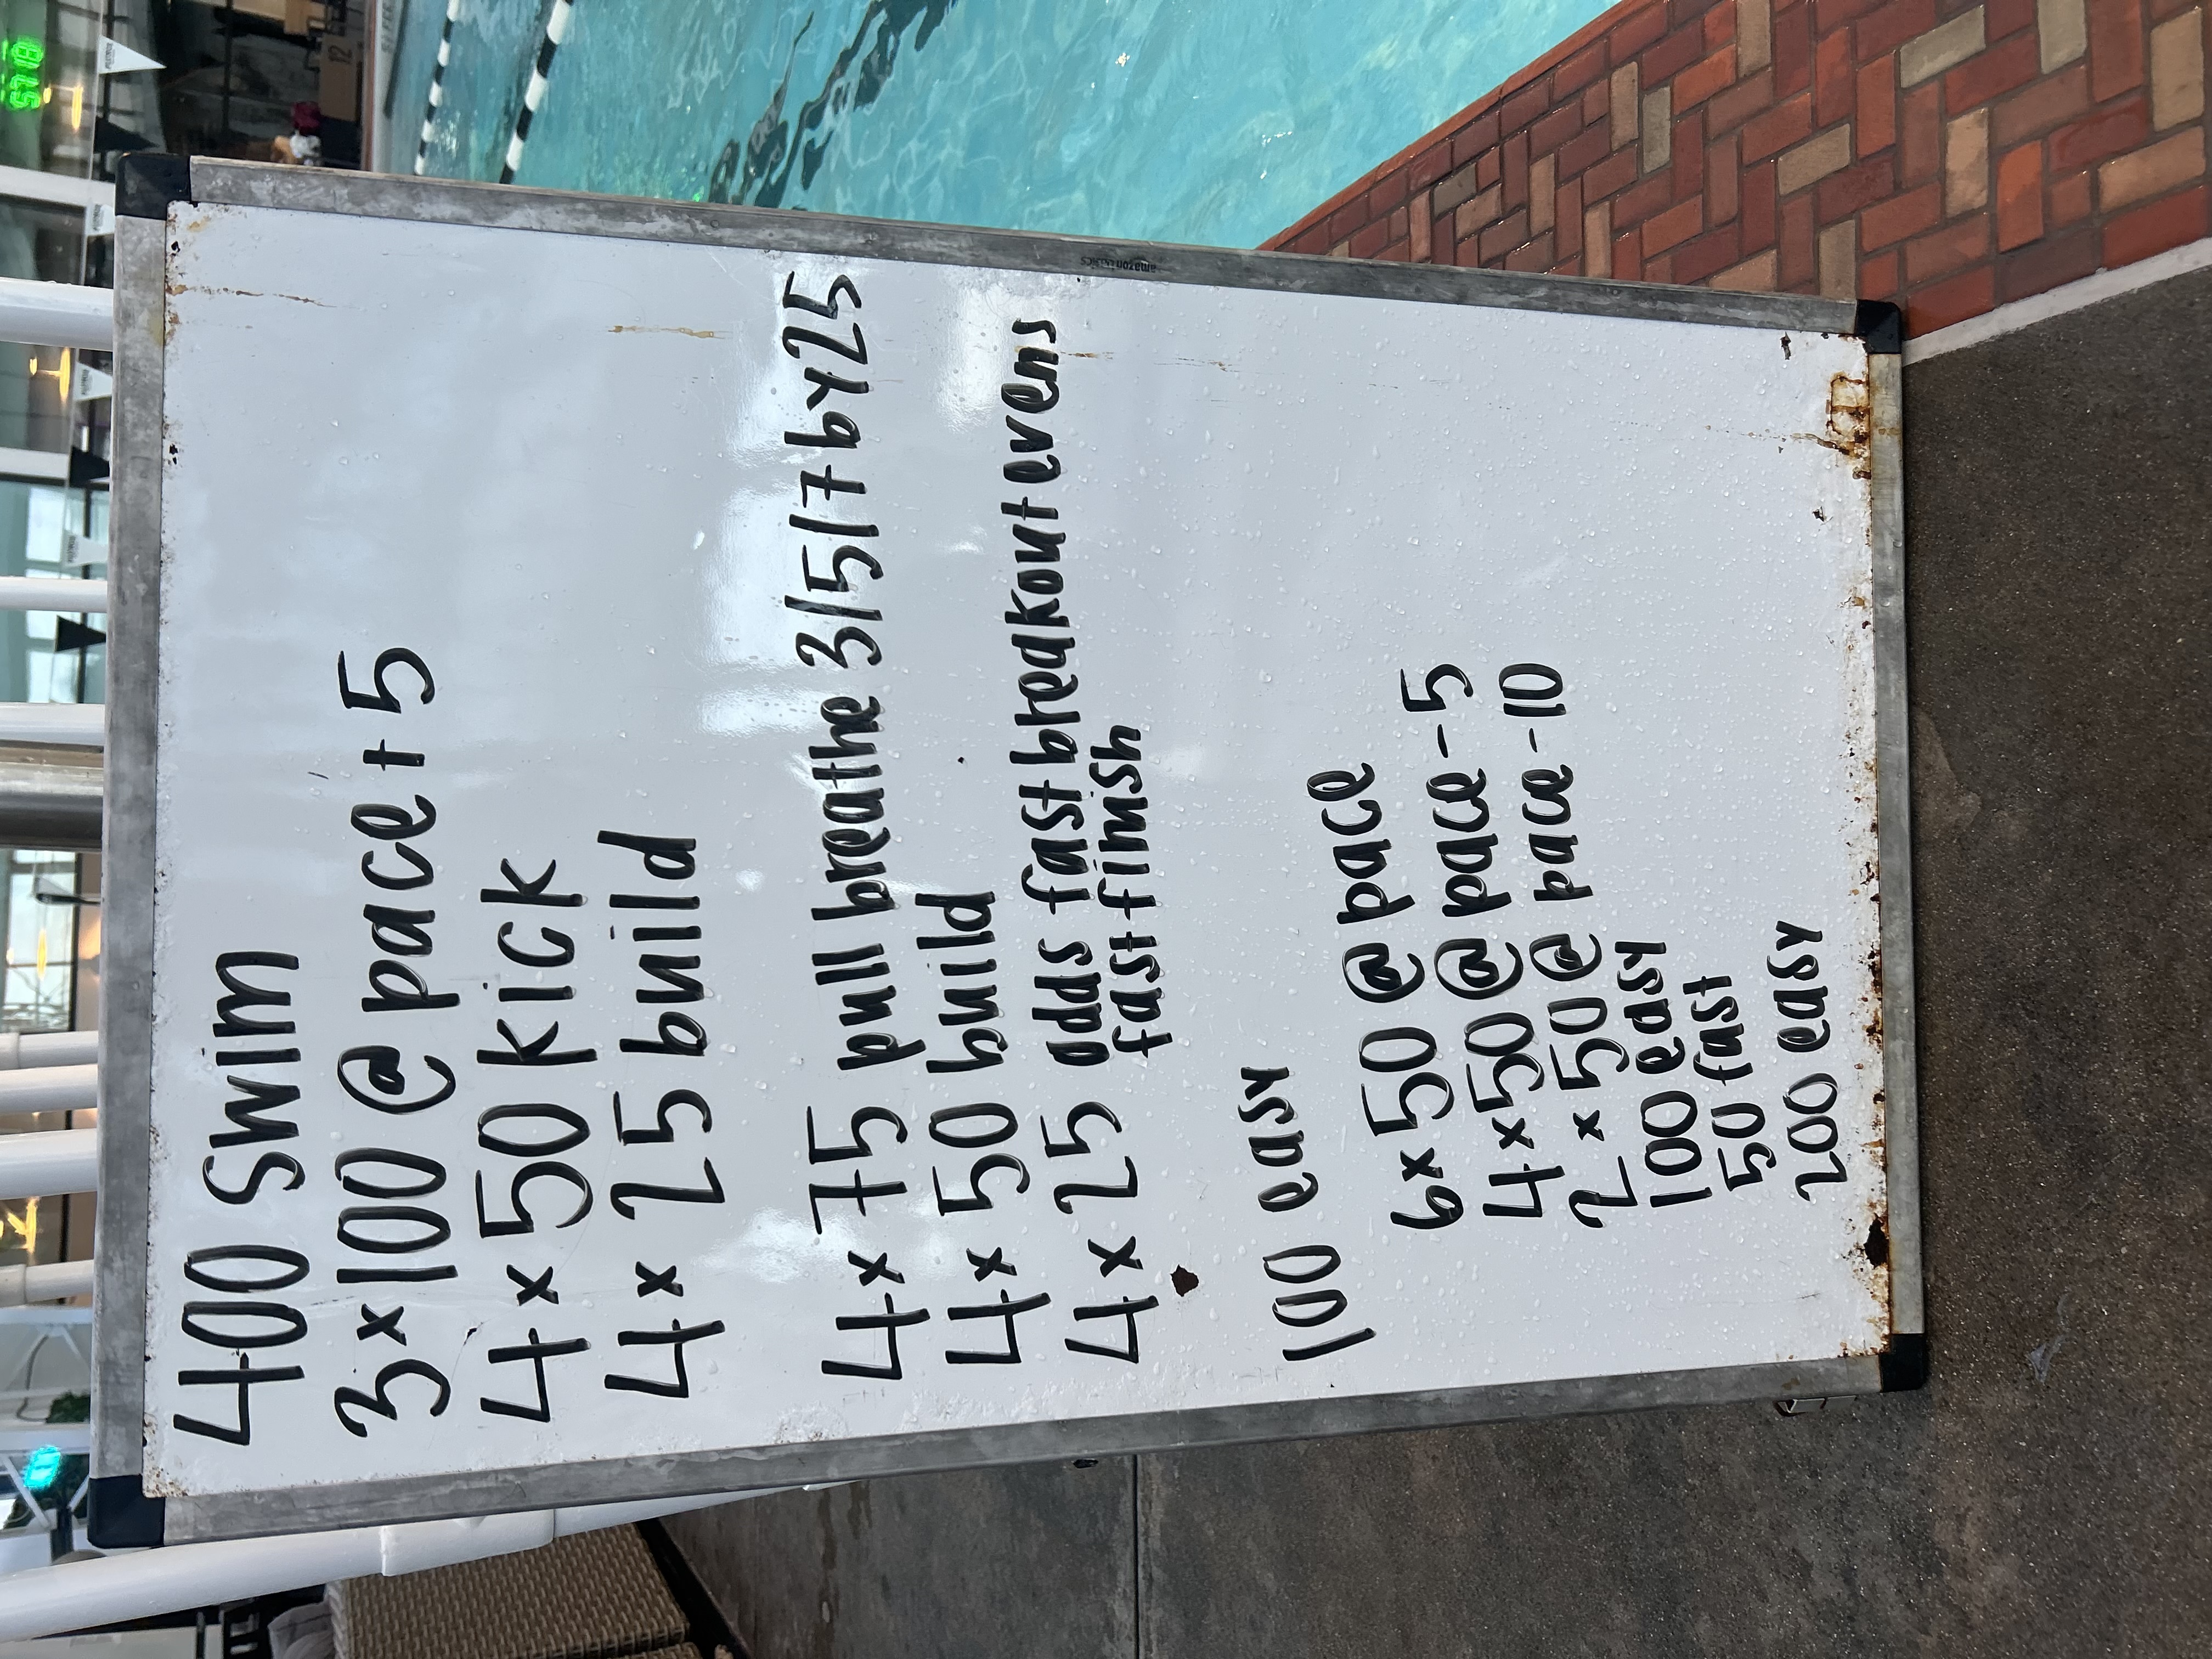 400 swim
3x100 @ pace + 5
4x50 kick
4x 25 build
4x 75 pull breathe 3/5/7 by 25
4x 50 build
4x 25 odds fast breakout evens
fast finish
100 easy
6x50 @ pace
4x50 @ pace - 5
2x50 @ pace -10
100 easy
50 fast
200 easy
amazon basics
12